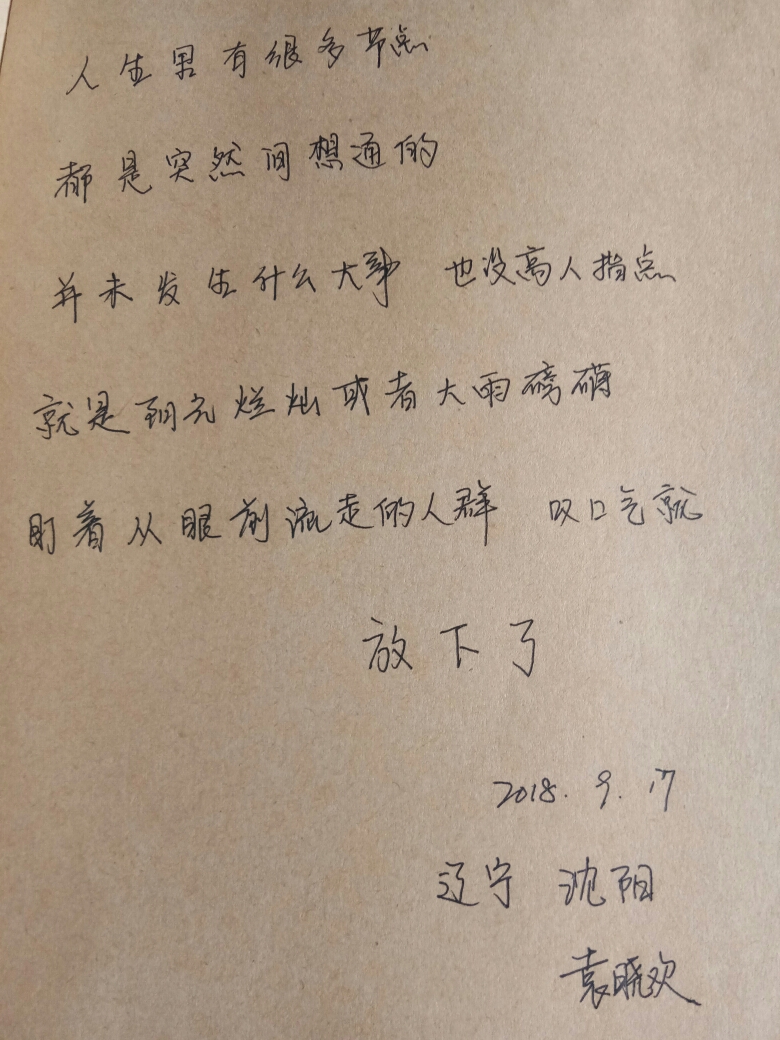 人生里有很多节点
都是突然间想通的
并未发生什么大事 也没高人指点
就是阳光灿烂或者大雨磅礴
盯着从眼前流走的人群 叹口气就
放下了
2018.9.17
辽宁 沈阳
袁晓欢